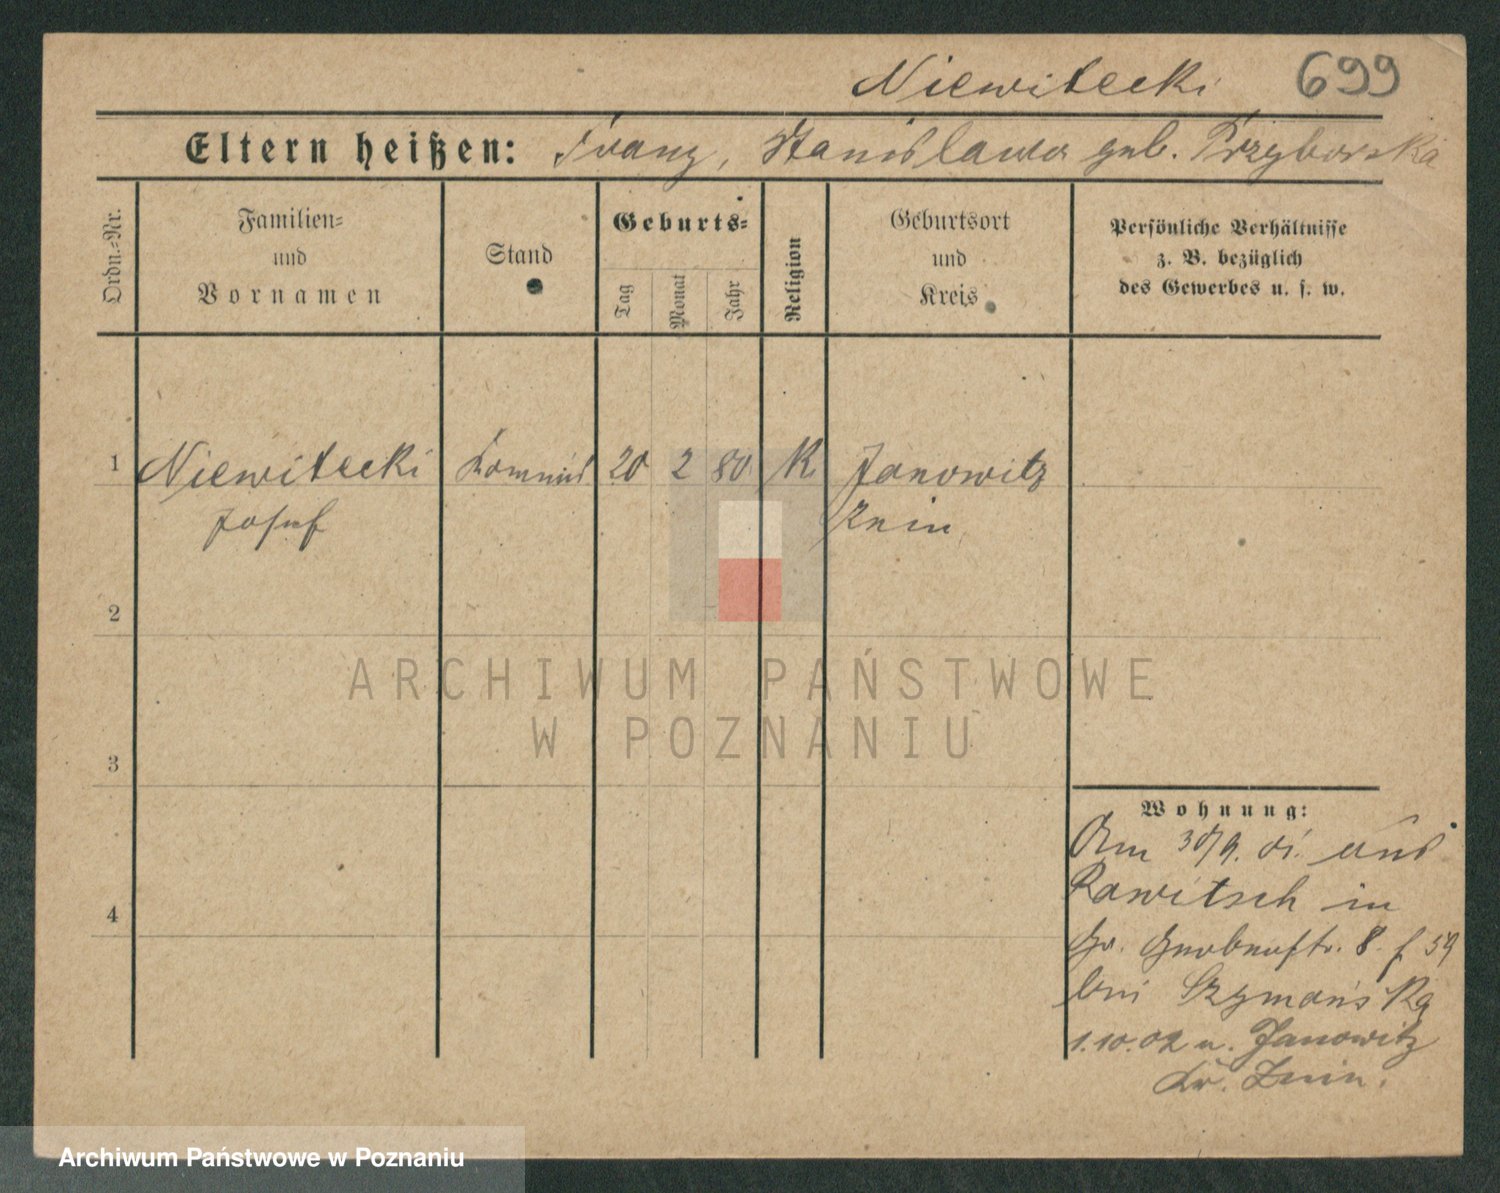 Niewitecki 699
Eltern heißen: Franz, Stanislawa geb. Przyborska
Ordn.-Nr.
Familien-
und
Vornamen
Stand
Geburts-
Tag
Monat
Jahr
Religion
Geburtsort
und
Kreis
Persönliche Verhältnisse
z. B. bezüglich
des Gewerbes u. s. w.
1 Niewitecki Kommis 20 2 80 K Janowitz
Josef Znin
2
3
4
ARCHIWUM PAŃSTWOWE
W POZNANIU
Wohnung:
Am 30/9. 01. aus
Rawitsch in
Gr. 8. 59
bei Szymańska
1.10.02 n. Janowitz
Kr. Znin.
Archiwum Państwowe w Poznaniu